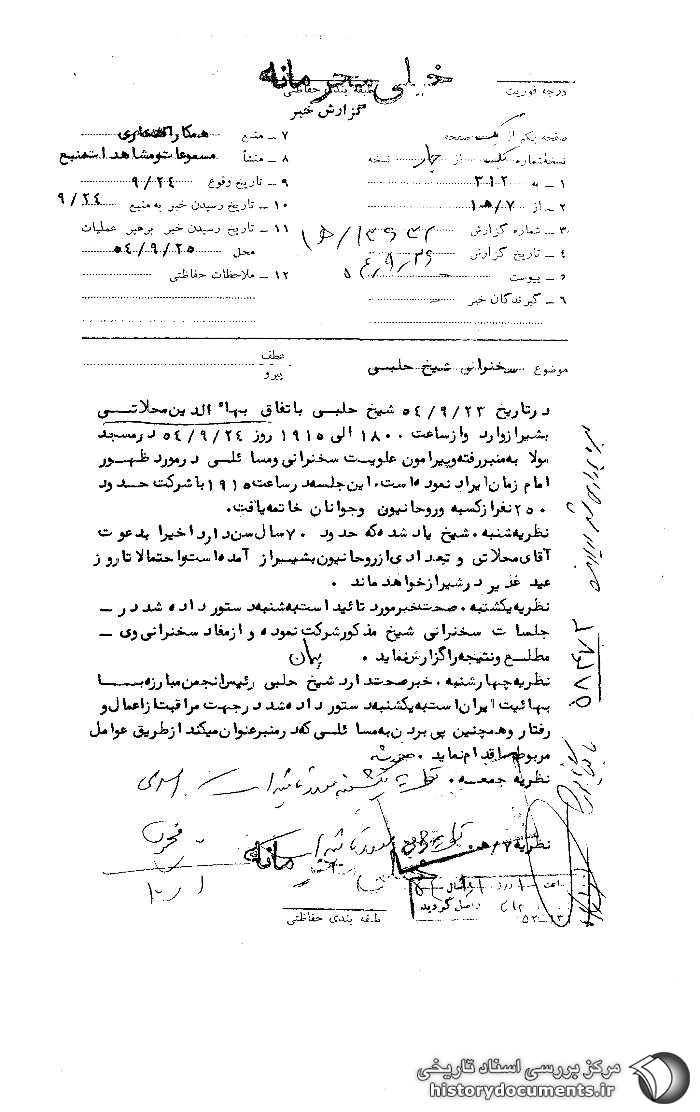 خیلی محرمانه
درجه فوریت
طبقه بندی حفاظتی
گزارش خبر
صفحه یکم از یک صفحه
نسخه شماره یک از چار نسخه
۱ ــ به ۳۱۲
۲ ــ از ۷/ﻫ ۱
۳ ــ شماره گزارش
۴ ــ تاریخ گزارش
۵ ــ پیوست
۶ ــ گیرندگان خبر
۷ ــ منبع همکار افتخاری
۸ ــ منشأ مسموعات و مشاهدات منبع
۹ ــ تاریخ وقوع ۹/۲۴
۱۰ ــ تاریخ رسیدن خبر به منبع ۹/۲۴
۱۱ ــ تاریخ رسیدن خبر برهبر عملیات
محل ۵۴/۹/۲۵
۱۲ ــ ملاحظات حفاظتی
موضوع سخنرانی شیخ حلبی
عطف
پیرو
در تاریخ ۵۴/۹/۲۳ شیخ حلبی باتفاق بهاءالدین محلاتی
بشیراز وارد و از ساعت ۱۸۰۰ الی ۱۹۱۵ روز ۵۴/۹/۲۴ در مسجد
مولا به منبر رفته و پیرامون علویت سخنرانی و مسائلی در مورد ظهور
امام زمان ایراد نموده است. این جلسه در ساعت ۱۹۱۵ با شرکت حدود
۲۵۰ نفر از کسبه و روحانیون وجوانان خاتمه یافت.
نظریه شنبه. شیخ یاد شده که حدود ۷۰ سال سن دارد اخیرا بدعوت
آقای محلاتی و تعدادی از روحانیون بشیراز آمده است و احتمالا تا روز
عید غدیر در شیراز خواهد ماند.
نظریه یکشنبه. صحت خبر مورد تائید است به شنبه دستور داده شد در ــ
جلسات سخنرانی شیخ مذکور شرکت نموده و از مفاد سخنرانی وی ــ
مطلع و نتیجه را گزارش نماید. پیمان
نظریه چهارشنبه. خبر صحت دارد شیخ حلبی رئیس انجمن مبارزه با
بهائیت ایران است به یکشنبه دستور داده شد در جهت مراقبت از اعمال و
رفتار و همچنین پی بردن به مسائلی که در منبر عنوان میکند از طریق عوامل
مربوطه اقدام نماید.
نظریه جمعه. نظریه یکشنبه مورد تائید است.
نظریه ۷/ﻫ
مورد تائید است
واصل گردید
طبقه بندی حفاظتی
مرکز بررسی اسناد تاریخی
historydocuments.ir